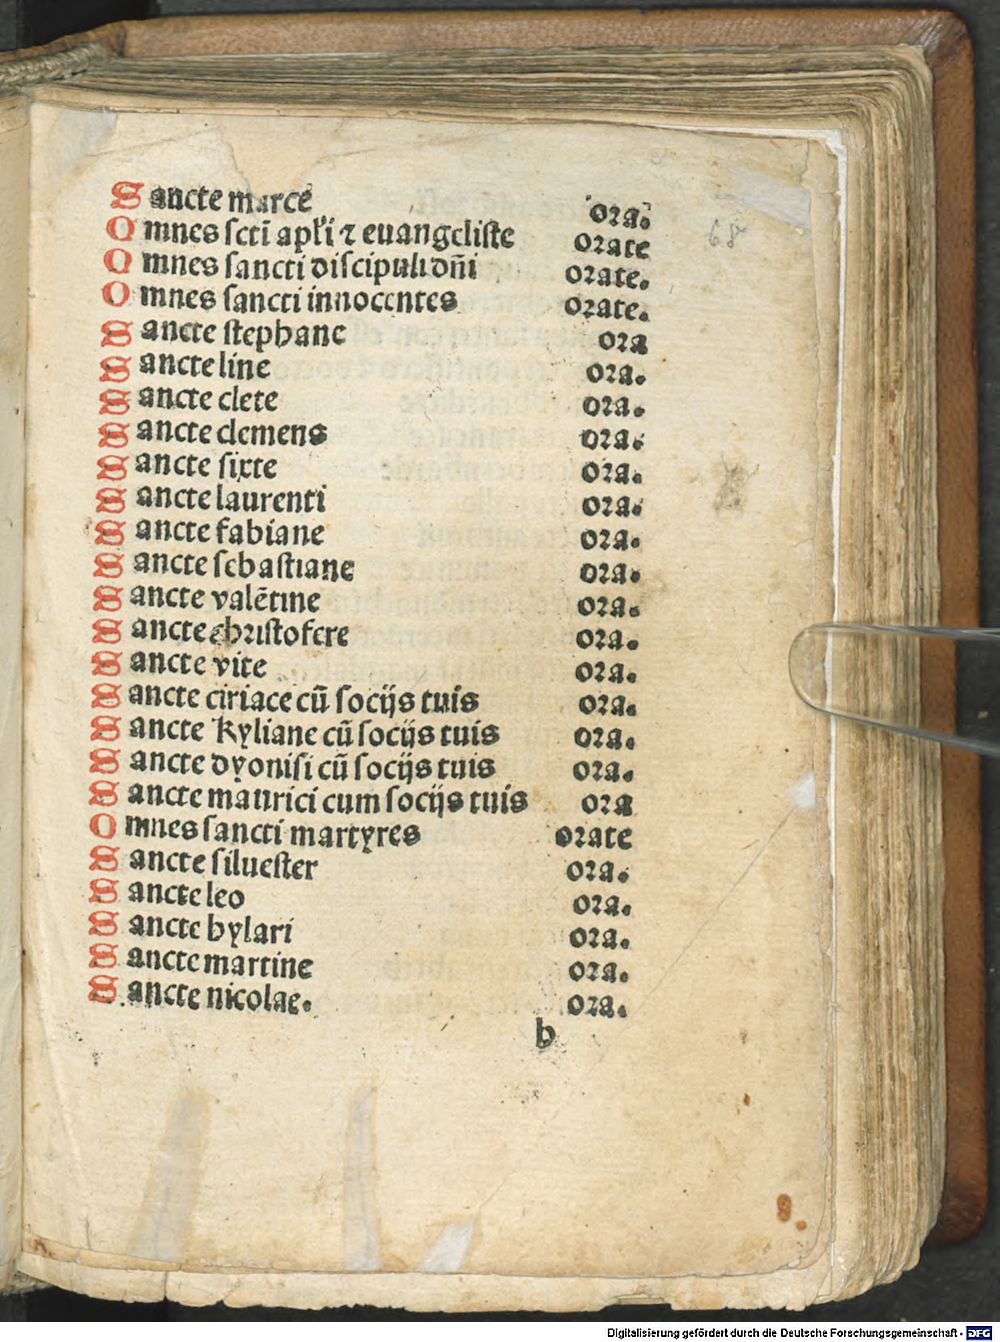 Sancte marce ora.
Omnes sctī apl'i ⁊ euangeliste orate
Omnes sancti discipuli dn̄i orate.
Omnes sancti innocentes orate.
Sancte stephane ora
Sancte line ora.
Sancte clete ora.
Sancte clemens ora.
Sancte sixte ora.
Sancte laurenti ora.
Sancte fabiane ora.
Sancte sebastiane ora.
Sancte valētine ora.
Sancte christofere ora.
Sancte vite ora.
Sancte ciriace cū socijs tuis ora.
Sancte Kyliane cū socijs tuis ora.
Sancte dyonisi cū socijs tuis ora.
Sancte maurici cum socijs tuis ora
Omnes sancti martyres orate
Sancte siluester ora.
Sancte leo ora.
Sancte hylari ora.
Sancte martine ora.
Sancte nicolae. ora.
b
68
Digitalisierung gefördert durch die Deutsche Forschungsgemeinschaft - DFG